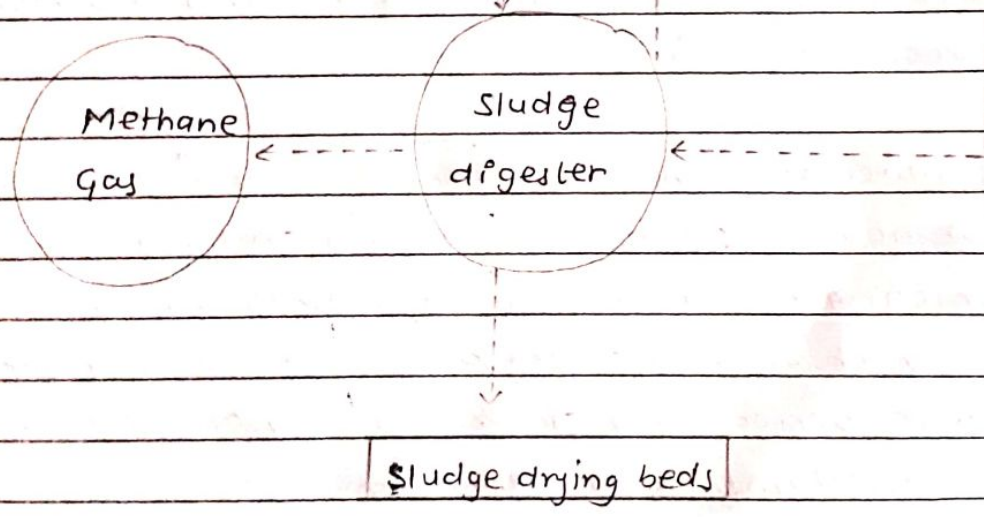 Methane
Gas
Sludge
digester
Sludge drying beds